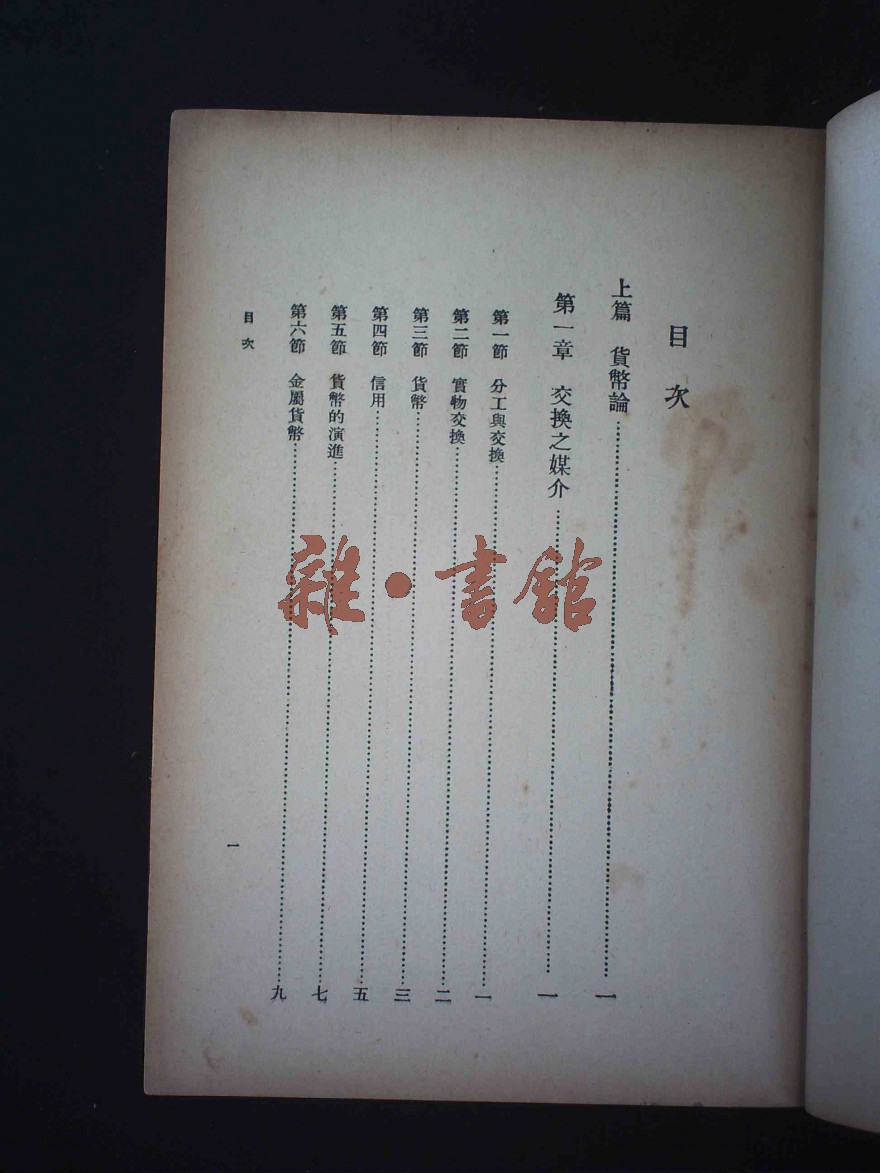 目次
上篇　貨幣論……一
第一章　交換之媒介……一
第一節　分工與交換……一
第二節　實物交換……二
第三節　貨幣……三
第四節　信用……五
第五節　貨幣的演進……七
第六節　金屬貨幣……九
目次
一
雜·書館